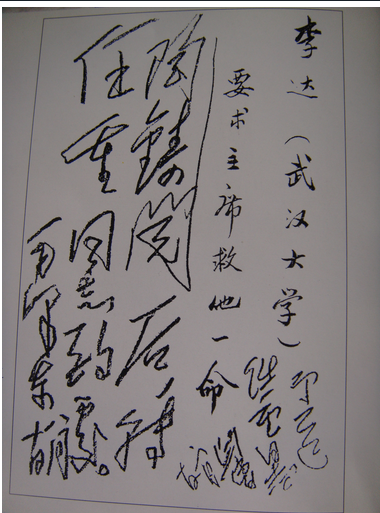 李达（武汉大学）
要求主席救他一命
陶铸阅后，转
任重同志酌处。
毛泽东